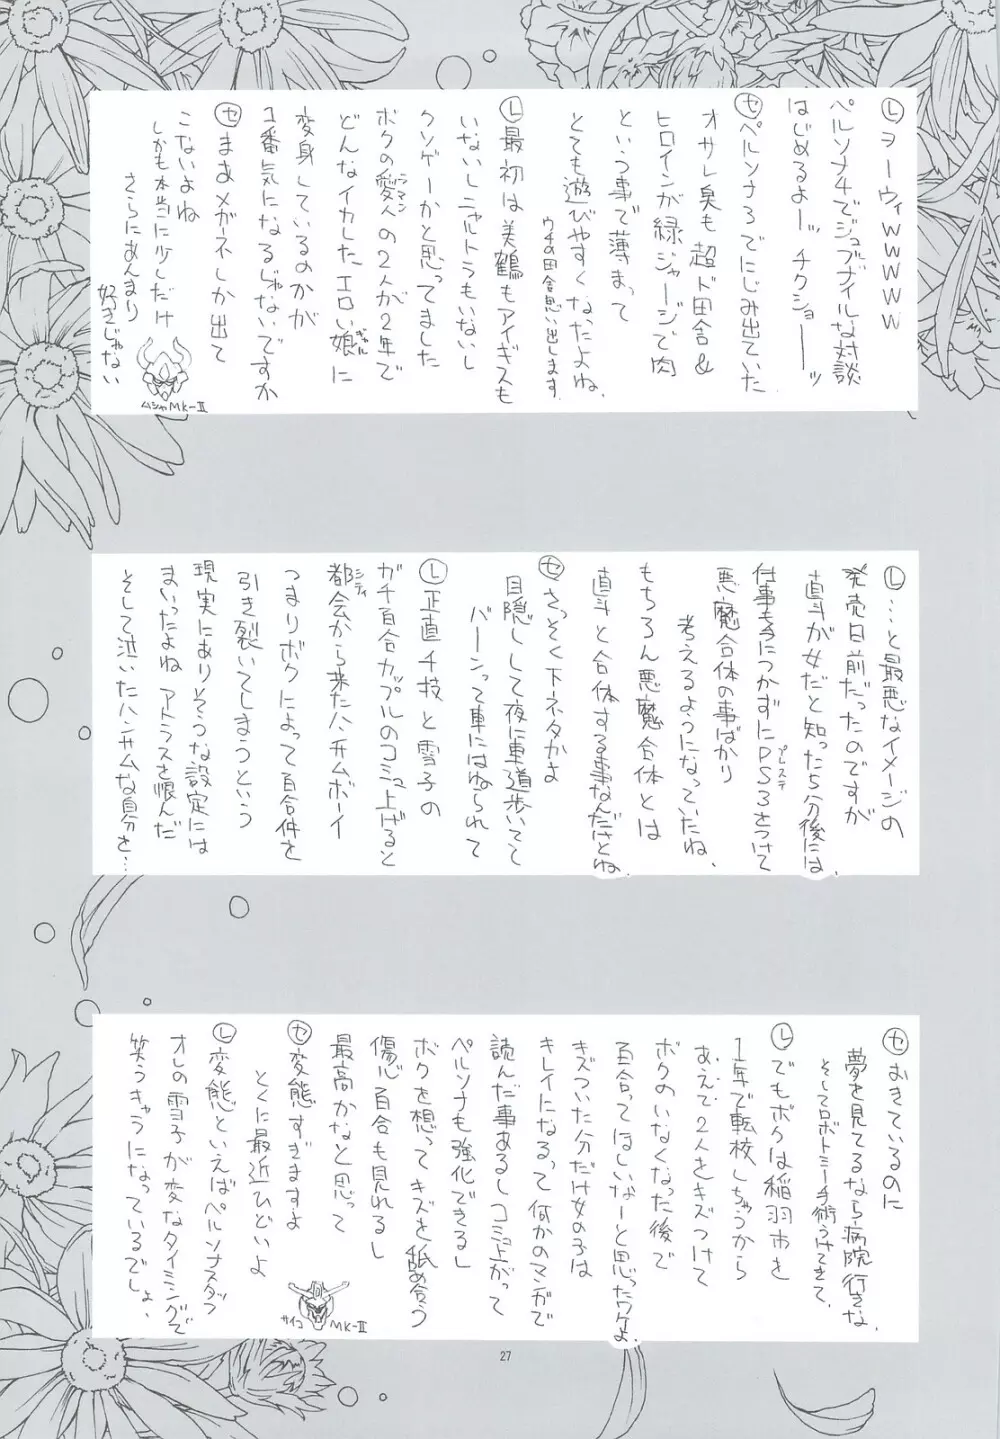 Ⓛヲーウィwwwww
ペルソナ4でジュブナイルな対談
はじめるよーッ チクショーーッ
㋝ペルソナ3でにじみ出ていた
オサレ臭も超ド田舎&
ヒロインが緑ジャージで肉
という事で薄まって
とても遊びやすくなったよね。
ウチの田舎思い出します
Ⓛ最初は美鶴もアイギスも
いないしニャルトラもいないし
クソゲーかと思ってました
ボクの愛人の2人が2年で
ラマン
どんなイカしたエロい娘に
ギャル
変身しているのかが
1番気になるじゃないですか
㋝まあメガネしか出て
こないよね
しかも本当に少しだけ
さらにあんまり
好きじゃない
ムシャMK-II
Ⓛ…と最悪なイメージの
発売日前だったのですが
直斗が女だと知った5分後には、
仕事も手につかずにPS3をつけて
プレステ
悪魔合体の事ばかり
考えるようになっていたね、
もちろん悪魔合体とは
直斗と合体する事なんださとね。
㋝さっそく下ネタかよ
目隠しして夜に車道歩いてて
バーンって車にはねられて
Ⓛ正直千枝と雪子の
ガチ百合カップルのコミュ上げると
都会から来たハンサムボーイ
シティ
つまりボクによって百合仲を
引き裂いてしまうという
現実にありそうな設定には
まいったよね アトラスを恨んだ
そして泣いたハンサムな自分を…
㋝おきているのに
夢を見てるなら病院行きな、
そしてロボトミー手術うけてきて、
Ⓛでもボクは稲羽市を
1年で転校しちゃうから
あえて2人をキズつけて
ボクのいなくなった後で
百合ってほしいなーと思ったワケよ、
キズついた分だけ女の子は
キレイになるって何かのマンガで
読んだ事あるしコミュ上がって
ペルソナも強化できるし
ボクを想ってキズを舐め合う
傷心百合も見れるし
最高かなと思って
㋝変態すぎますよ
とくに最近ひどいよ
サイコ MK-II
Ⓛ変態といえばペルソナスタッフ
オレの雪子が変なタイミングで
笑うキャラになっているでしょ、
27